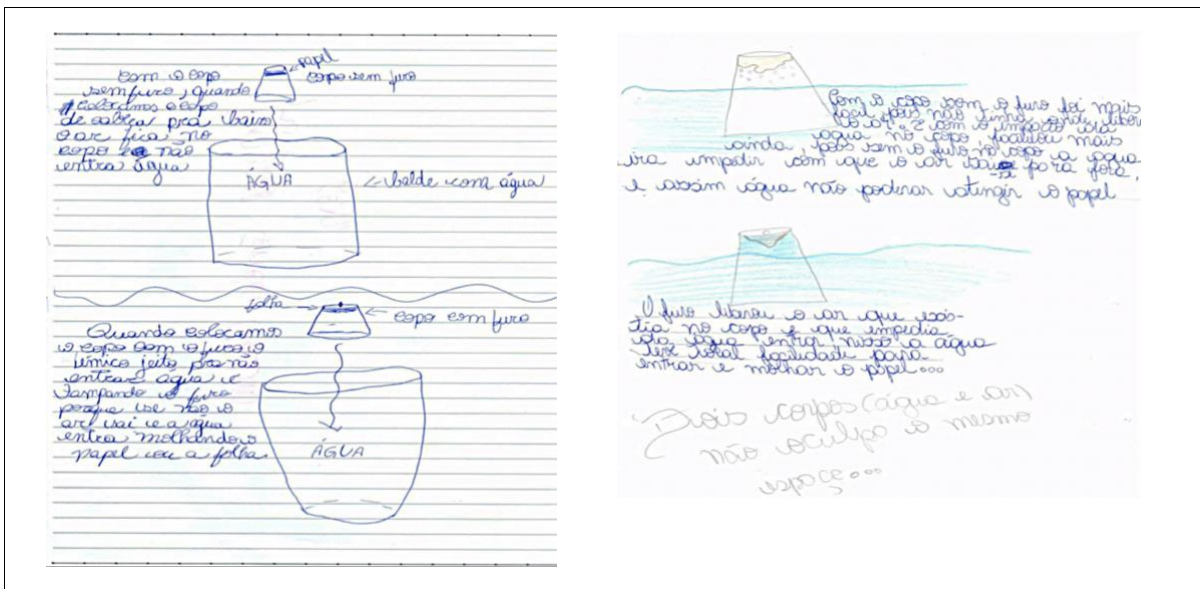 papel
copo sem furo
com o copo
sem furo, quando
colocamos o copo
de cabeça pra baixo
o ar fica no
copo e não
entra água
ÁGUA
balde com água
folha
copo com furo
Quando colocamos
o copo com o furo o
único jeito pra não
entrar água e
tampando o furo
porque se não o
ar sai e a água
entra molhando o
papel ou a folha
ÁGUA
Com o copo sem o furo foi mais
facil pois não tinha onde liber
o ar. E com o impacto da
água no copo facilitou mais
ainda, pois sem o furo no copo a agua
ira impedir com que o ar saia para fora,
e assim água não poderar atingir o papel
O furo liberou o ar que exis-
tia no copo e que impedia
da água entrar nisso a água
teve total facilidade para
entrar e molhar o papel...
Dois corpos (água e ar)
não oculpa o mesmo
espaço...